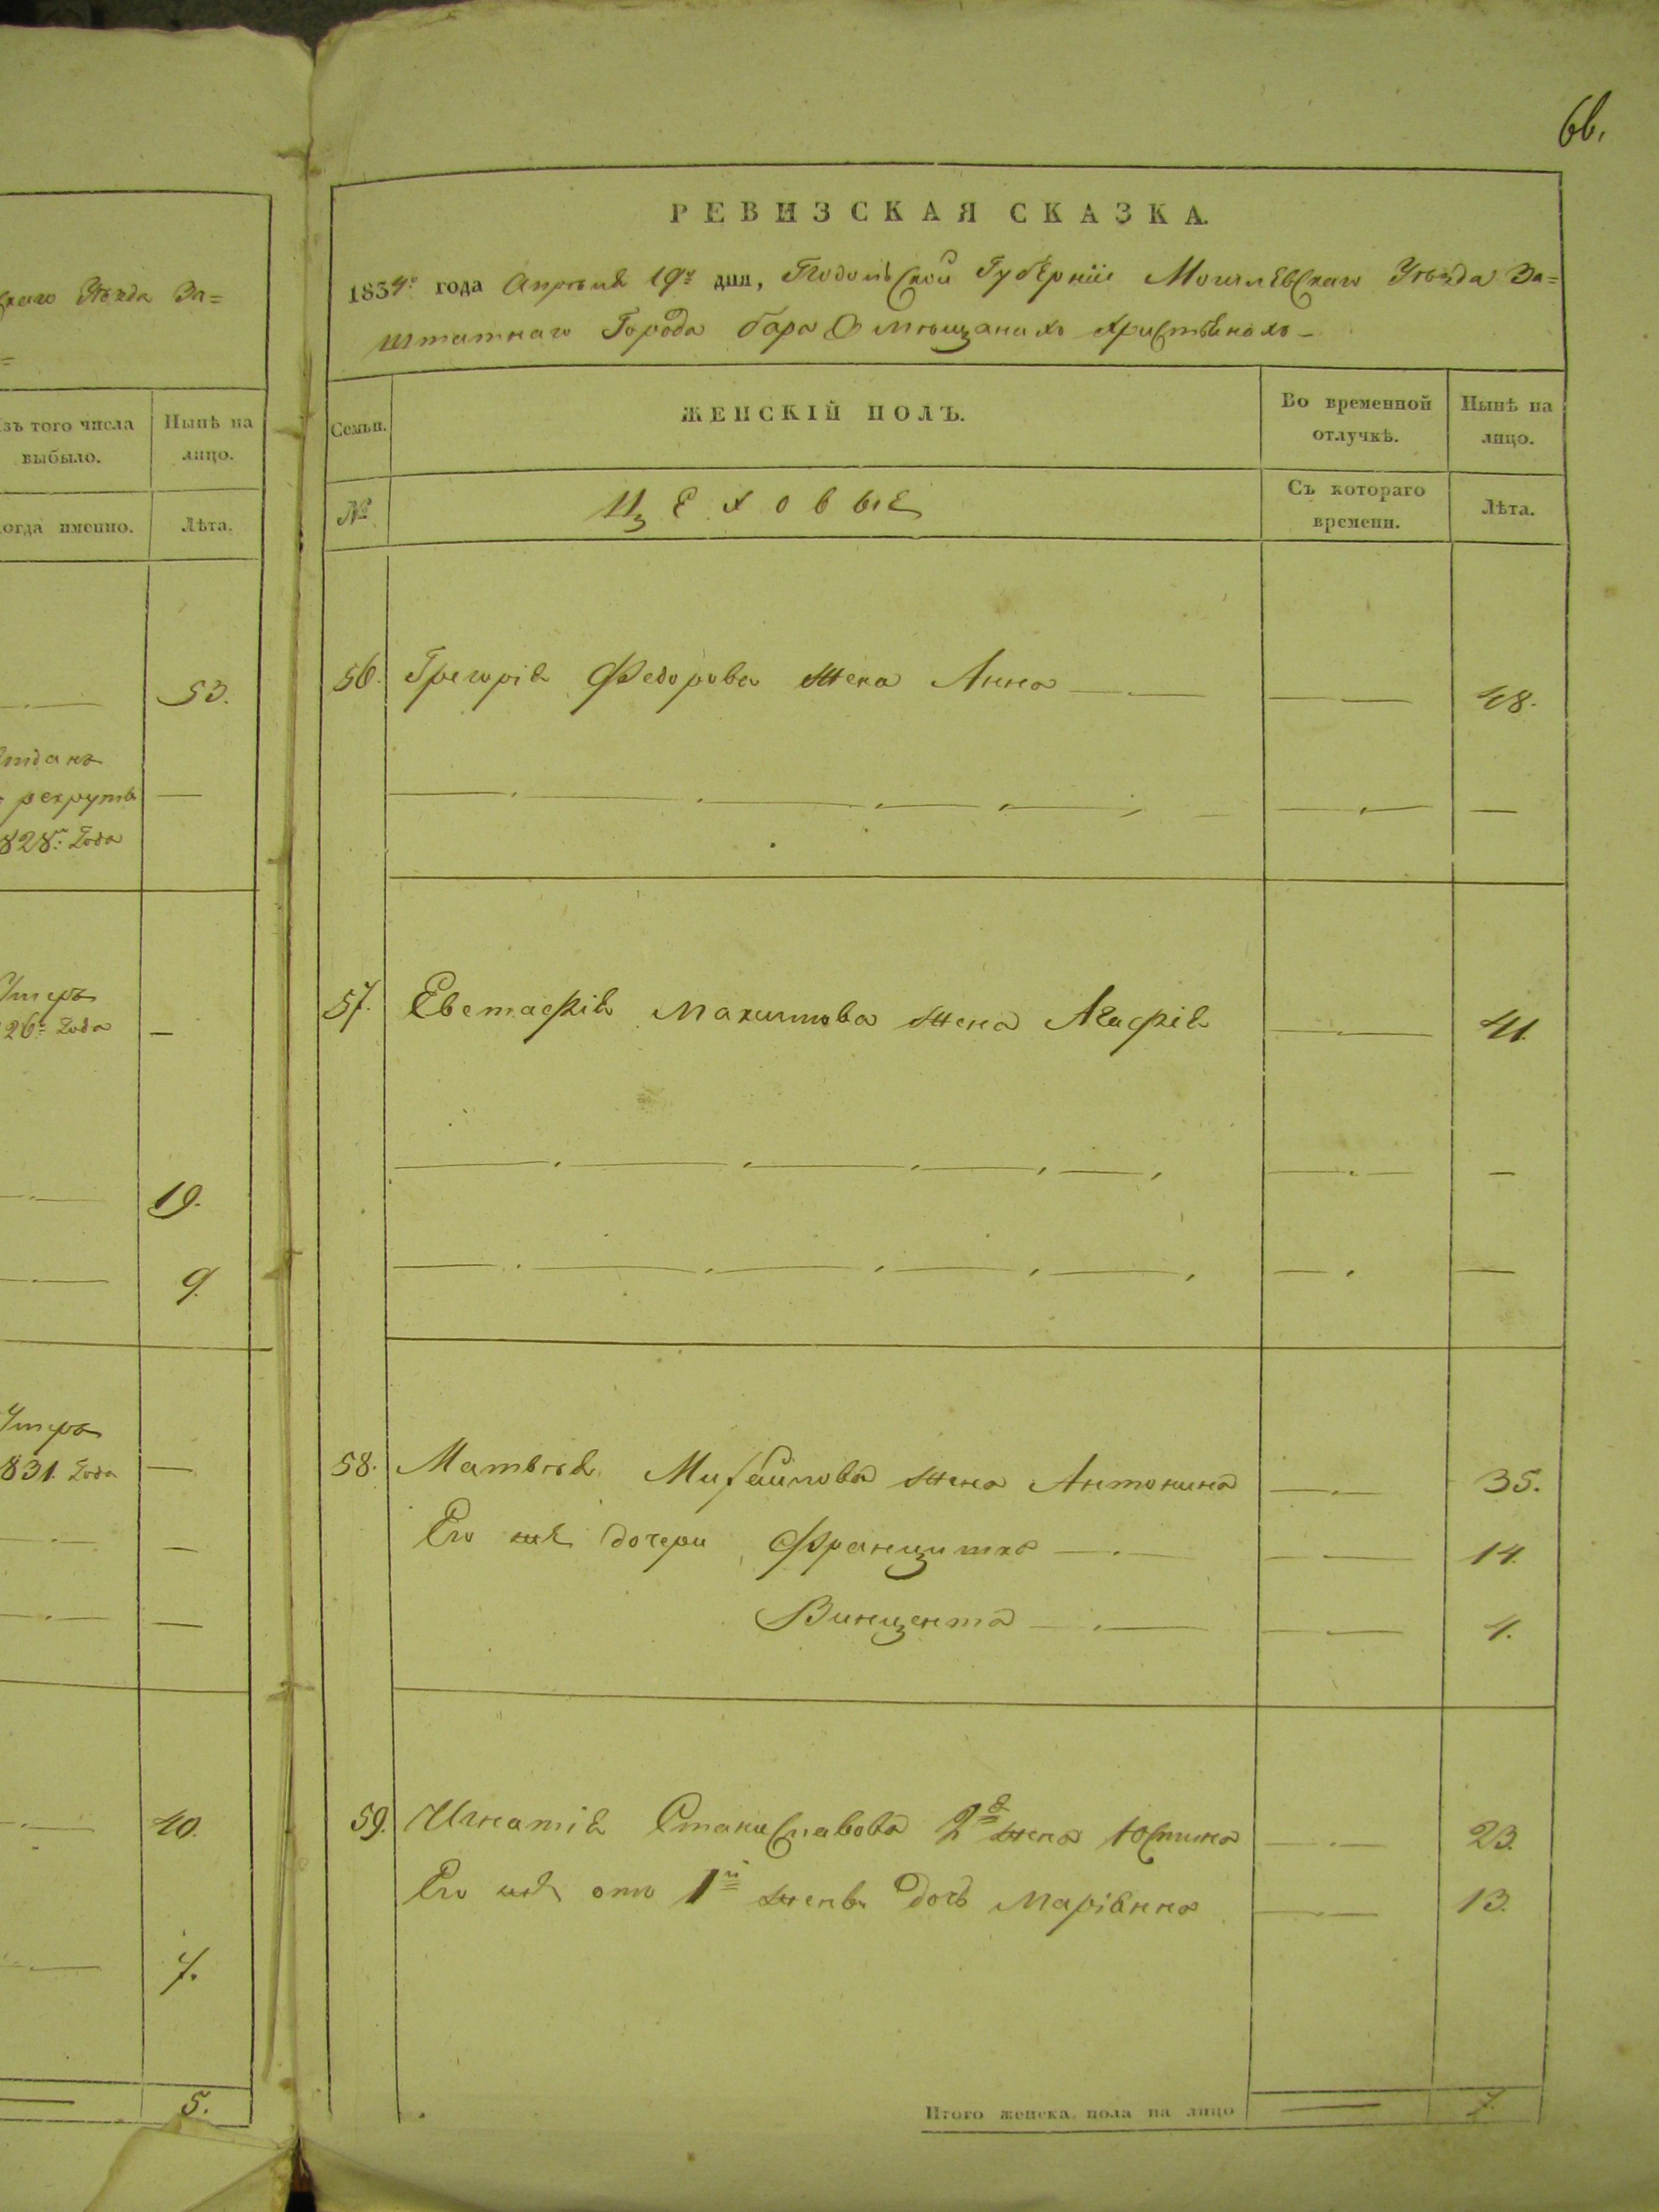 66.
скаго Уѣзда За=
=
Изъ того числа
выбыло.
Нынѣ на
лицо.
Когда именно.
Лѣта.
53.
Отданъ
рекруты —
1828го Года
Умеръ
826го Года —
19.
9.
Умеръ
1831 Года —
—
—
40.
7.
5.
РЕВИЗСКАЯ СКАЗКА.
1834го года Апрѣля 19го дня, Подольской Губерніи Могилевскаго Уѣзда За=
штатнаго Города Бара О мѣщанахъ христьянахъ —
Семьи.
ЖЕНСКІЙ ПОЛЪ.
Во временной
отлучкѣ.
Нынѣ на
лицо.
№
Цеховые
Съ котораго
времени.
Лѣта.
56. Грегорія Федорова жена Анна — — 48.
57. Евстафія Максимова жена Агафія — 41.
58. Матвѣя Михайлова жена Антонина — 35.
Его же дочери Францишка — — 14.
Винцента — — 4.
59. Игнатія Станиславова 2я жена Юстина — 23.
Его же отъ 1й жены дочь Маріанна — 13.
Итого женска пола на лицо — 7.